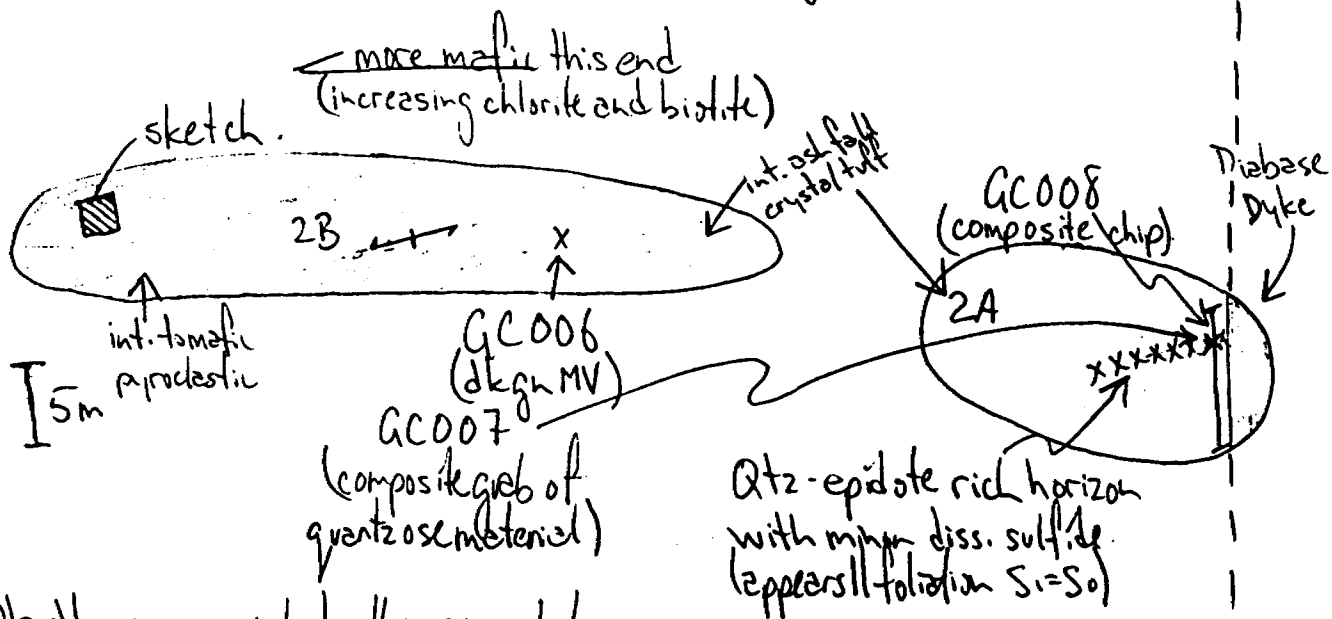 more mafic this end
(increasing chlorite and biotite)
sketch.
int. ash fall
crystal tuff
Diabase
Dyke
GC008
(composite chip)
2B
x
2A
xxxxxxx
int. to mafic
pyroclastic
5m
GC006
(dkgn MV)
GC007
(composite grab of
quartzose material)
Qtz-epidote rich horizon
with minor diss. sulfide
(appears || foliation S1=S0)